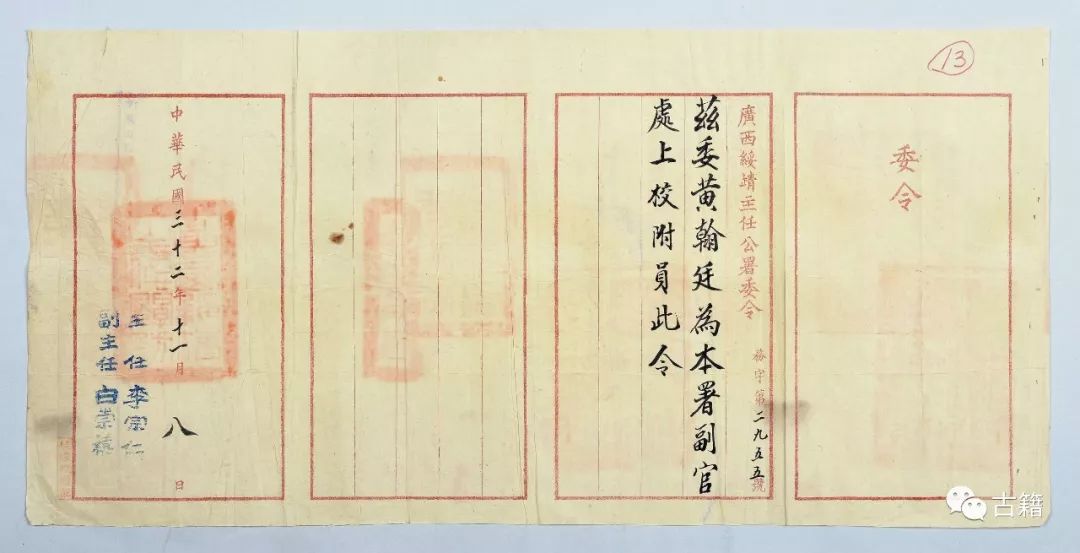 13
委令
廣西綏靖主任公署委令
務字第二九五五號
茲委黃翰廷為本署副官
處上校附員此令
中華民國三十二年十一月八日
主任李宗仁
副主任白崇禧
古籍